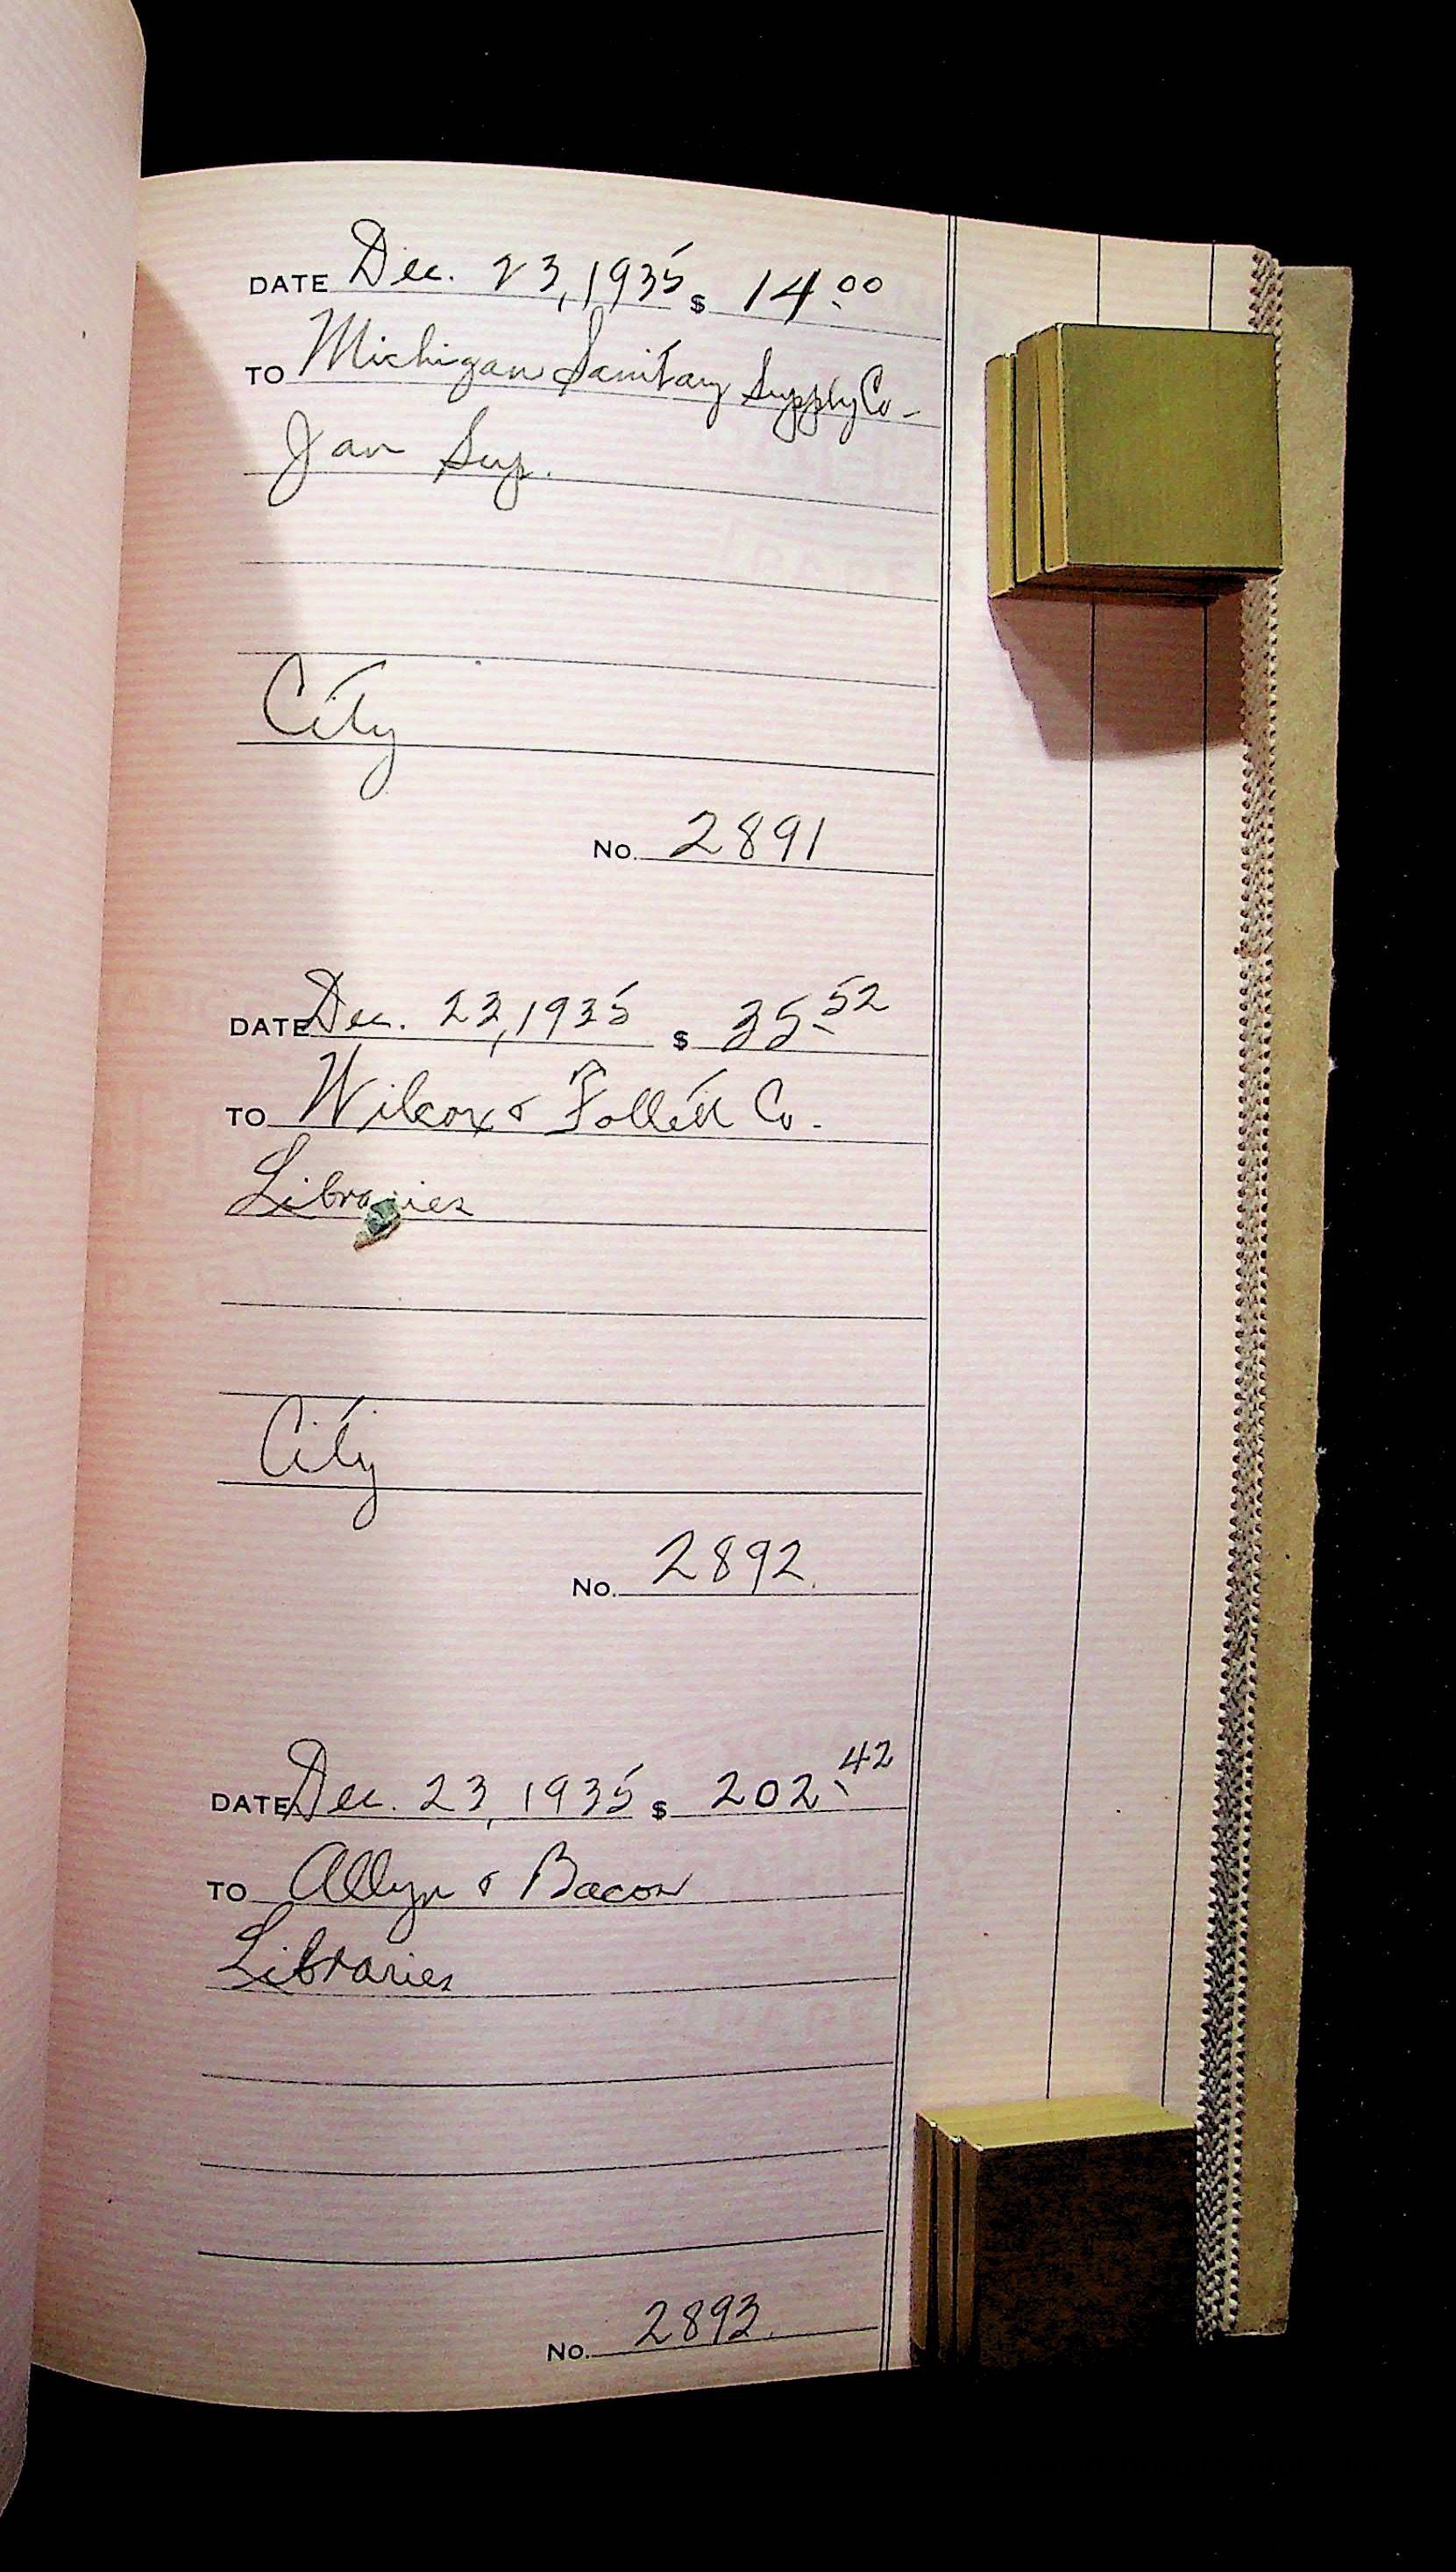 DATE Dec. 23, 1935 $ 14.00
TO Michigan Sanitary Supply Co.
Jan Sup.
City
No. 2891
DATE Dec. 23, 1935 $ 35.52
TO Wilcox & Follett Co.
Libraries
City
No. 2892.
DATE Dec. 23, 1935 $ 202.42
TO Allyn & Bacon
Libraries
No. 2893.